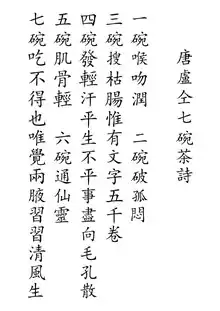 唐盧仝七碗茶詩
一碗喉吻潤　二碗破孤悶
三碗搜枯腸惟有文字五千卷
四碗發輕汗平生不平事盡向毛孔散
五碗肌骨輕　六碗通仙靈
七碗吃不得也唯覺兩腋習習清風生